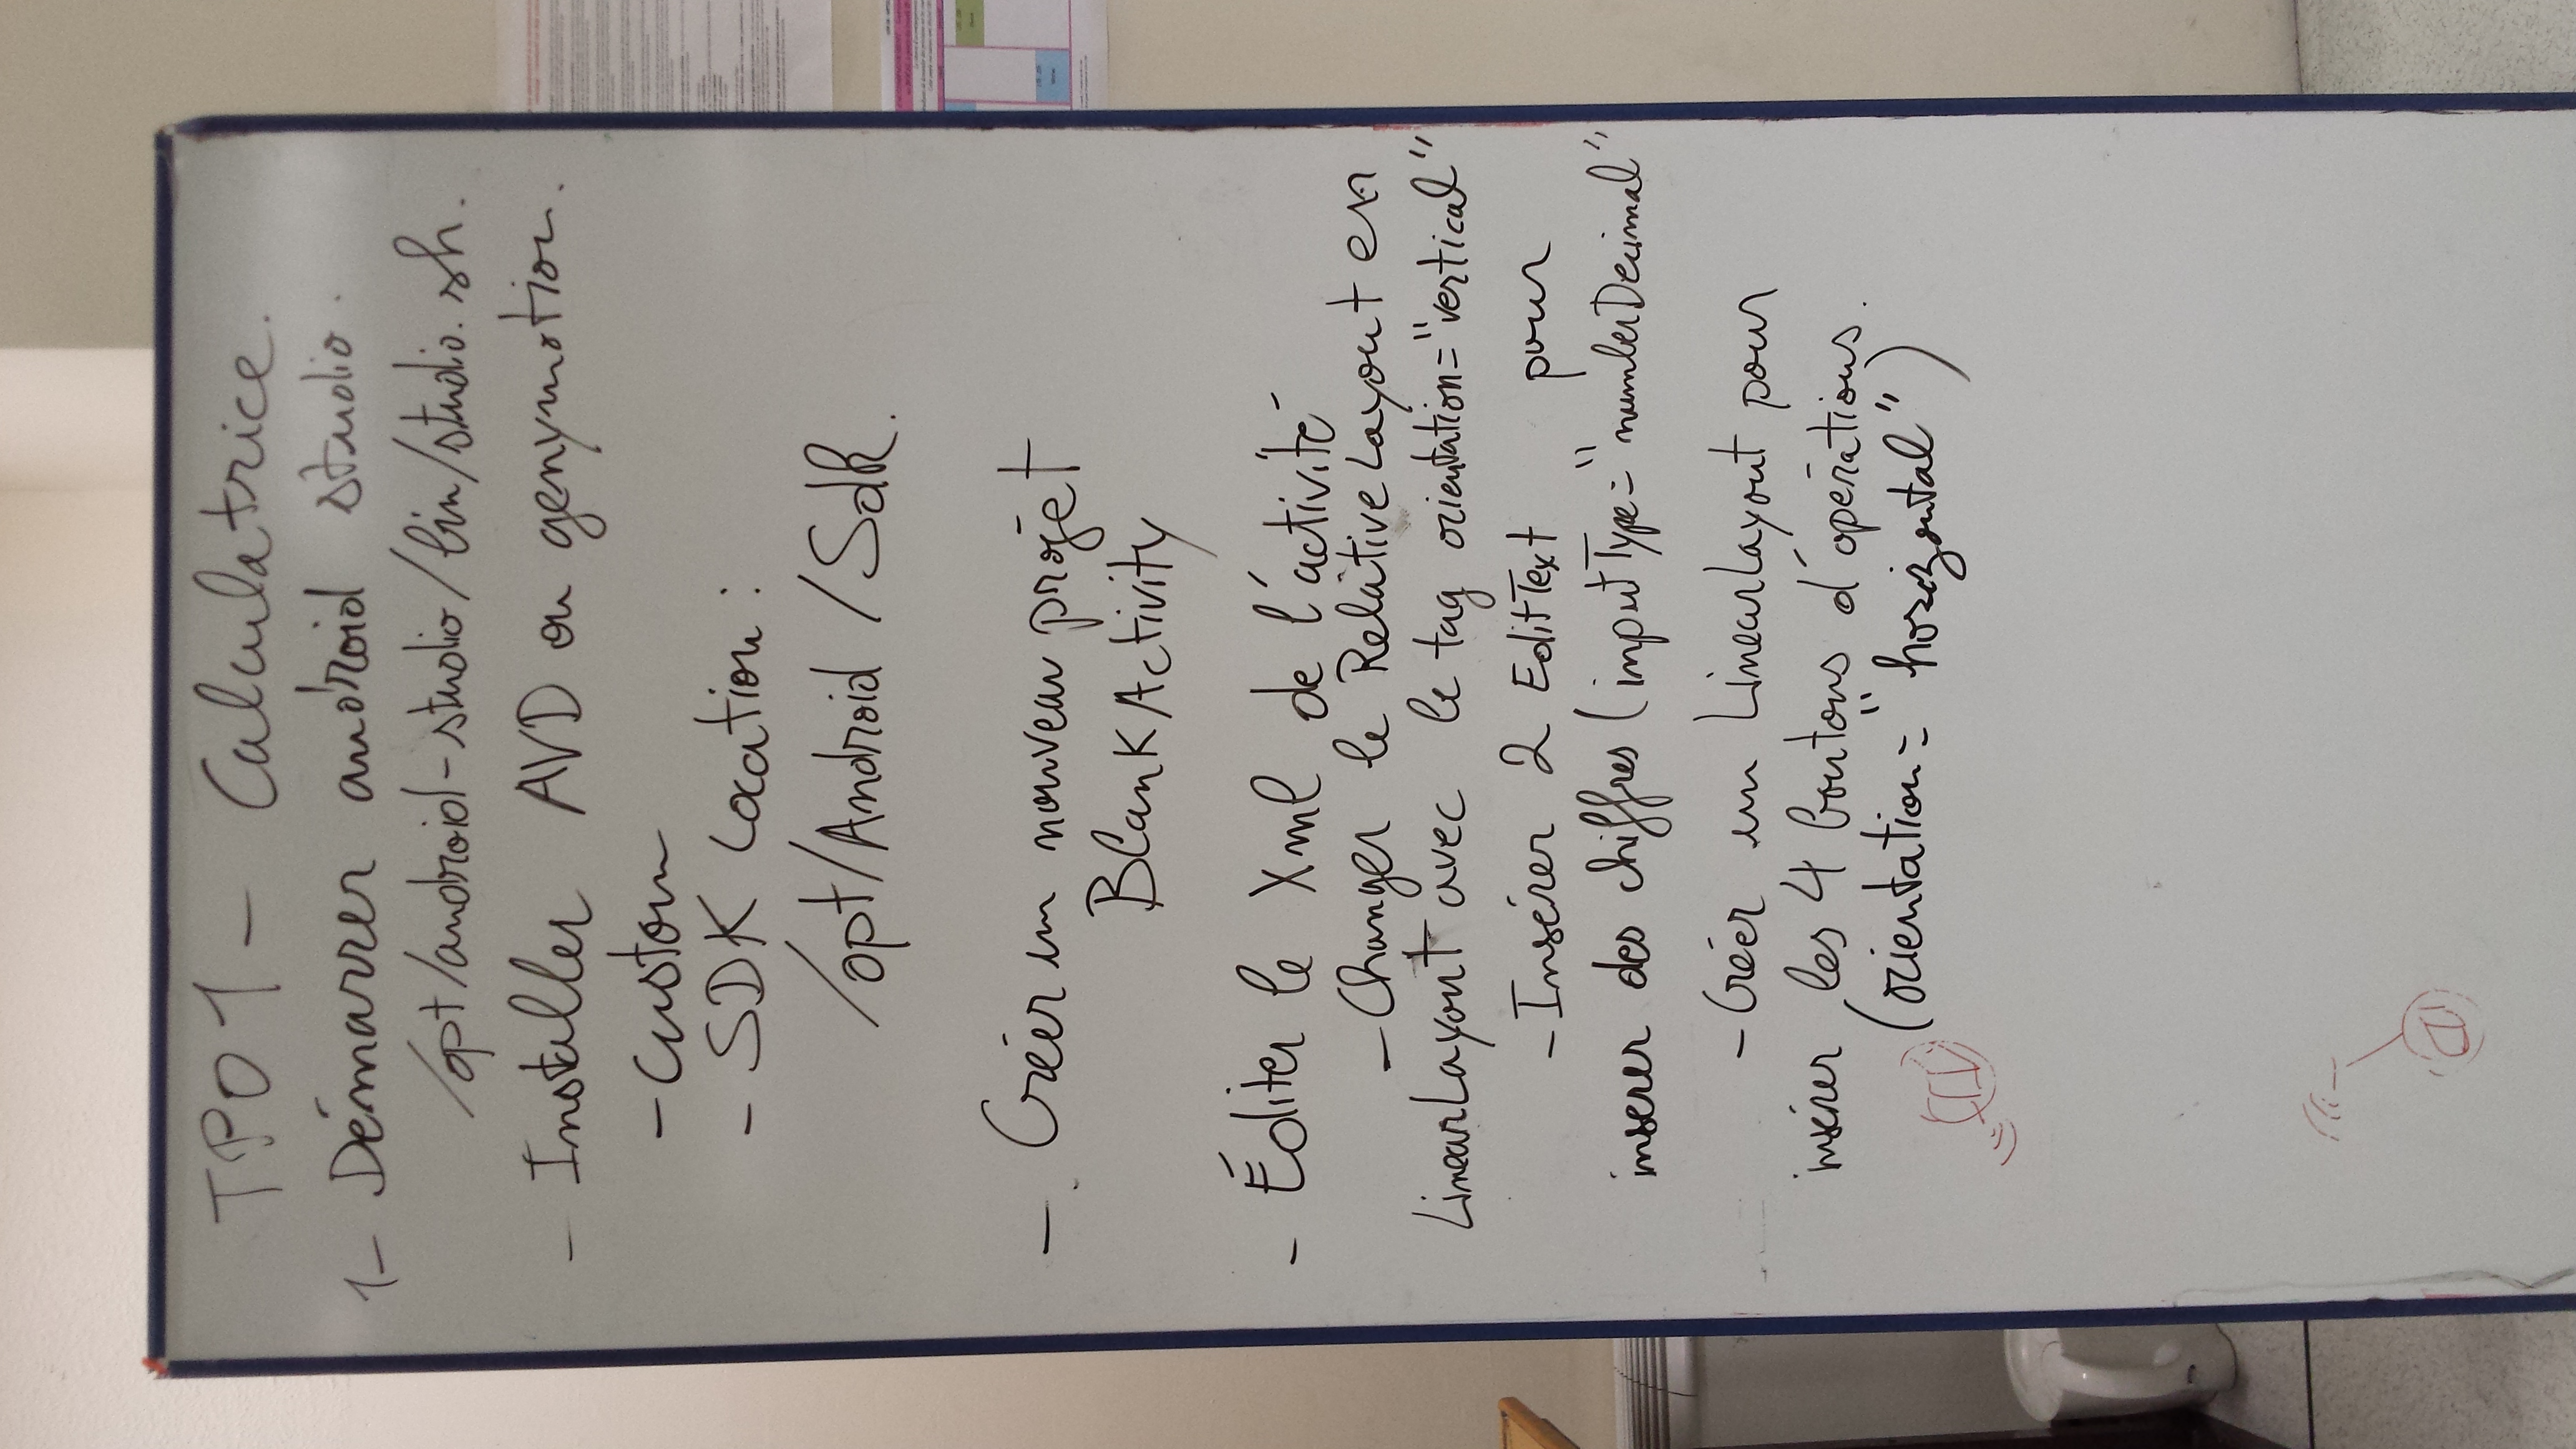 TP01 - Calculatrice.
1- Démarrer android studio.
/opt/android-studio/bin/studio.sh.
- Installer AVD ou genymotion.
- Custom
- SDK Location :
/opt/Android/Sdk.
- Créer un nouveau projet
BlankActivity
- Éditer le Xml de l'activité
- Changer le RelativeLayout en
LinearLayout avec le tag orientation="vertical"
- Insérer 2 EditText pour
inserer des chiffres (inputType="numberDecimal"
- Créer un LinearLayout pour
insérer les 4 boutons d'opérations.
(orientation="horizontal")